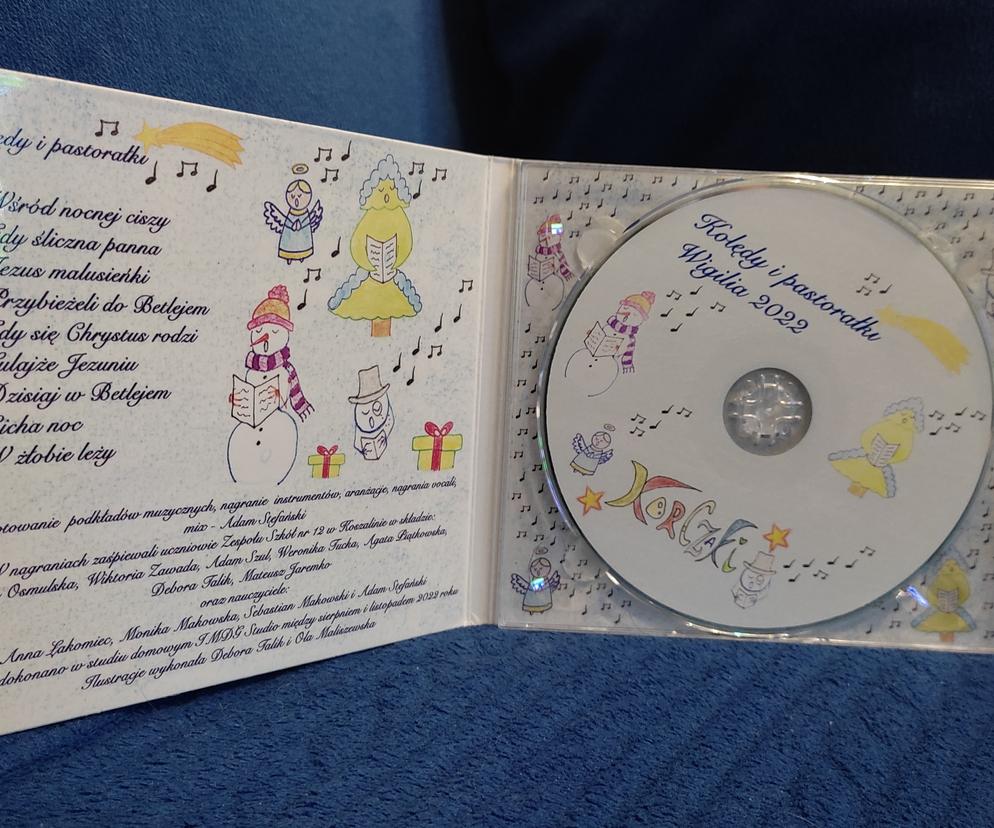 ędy i pastorałki
Wśród nocnej ciszy
dy śliczna panna
Jezus malusieńki
Przybieżeli do Betlejem
dy się Chrystus rodzi
ulajże Jezuniu
Dzisiaj w Betlejem
icha noc
W żłobie leży
otowanie podkładów muzycznych, nagranie instrumentów, aranżacje, nagrania wokali,
mix - Adam Stefański
W nagraniach zaśpiewali uczniowie Zespołu Szkół nr 12 w Koszalinie w składzie:
Osmulska, Wiktoria Zawada, Adam Szul, Weronika Tucka, Agata Piątkowska,
Debora Talik, Mateusz Jaremko
oraz nauczyciele:
Anna Łakomiec, Monika Makowska, Sebastian Makowski i Adam Stefański
dokonano w studiu domowym IMDG Studio między sierpniem i listopadem 2022 roku
Ilustracje wykonała Debora Talik i Ola Maliszewska
Kolędy i pastorałki
Wigilia 2022
KORCZAKi